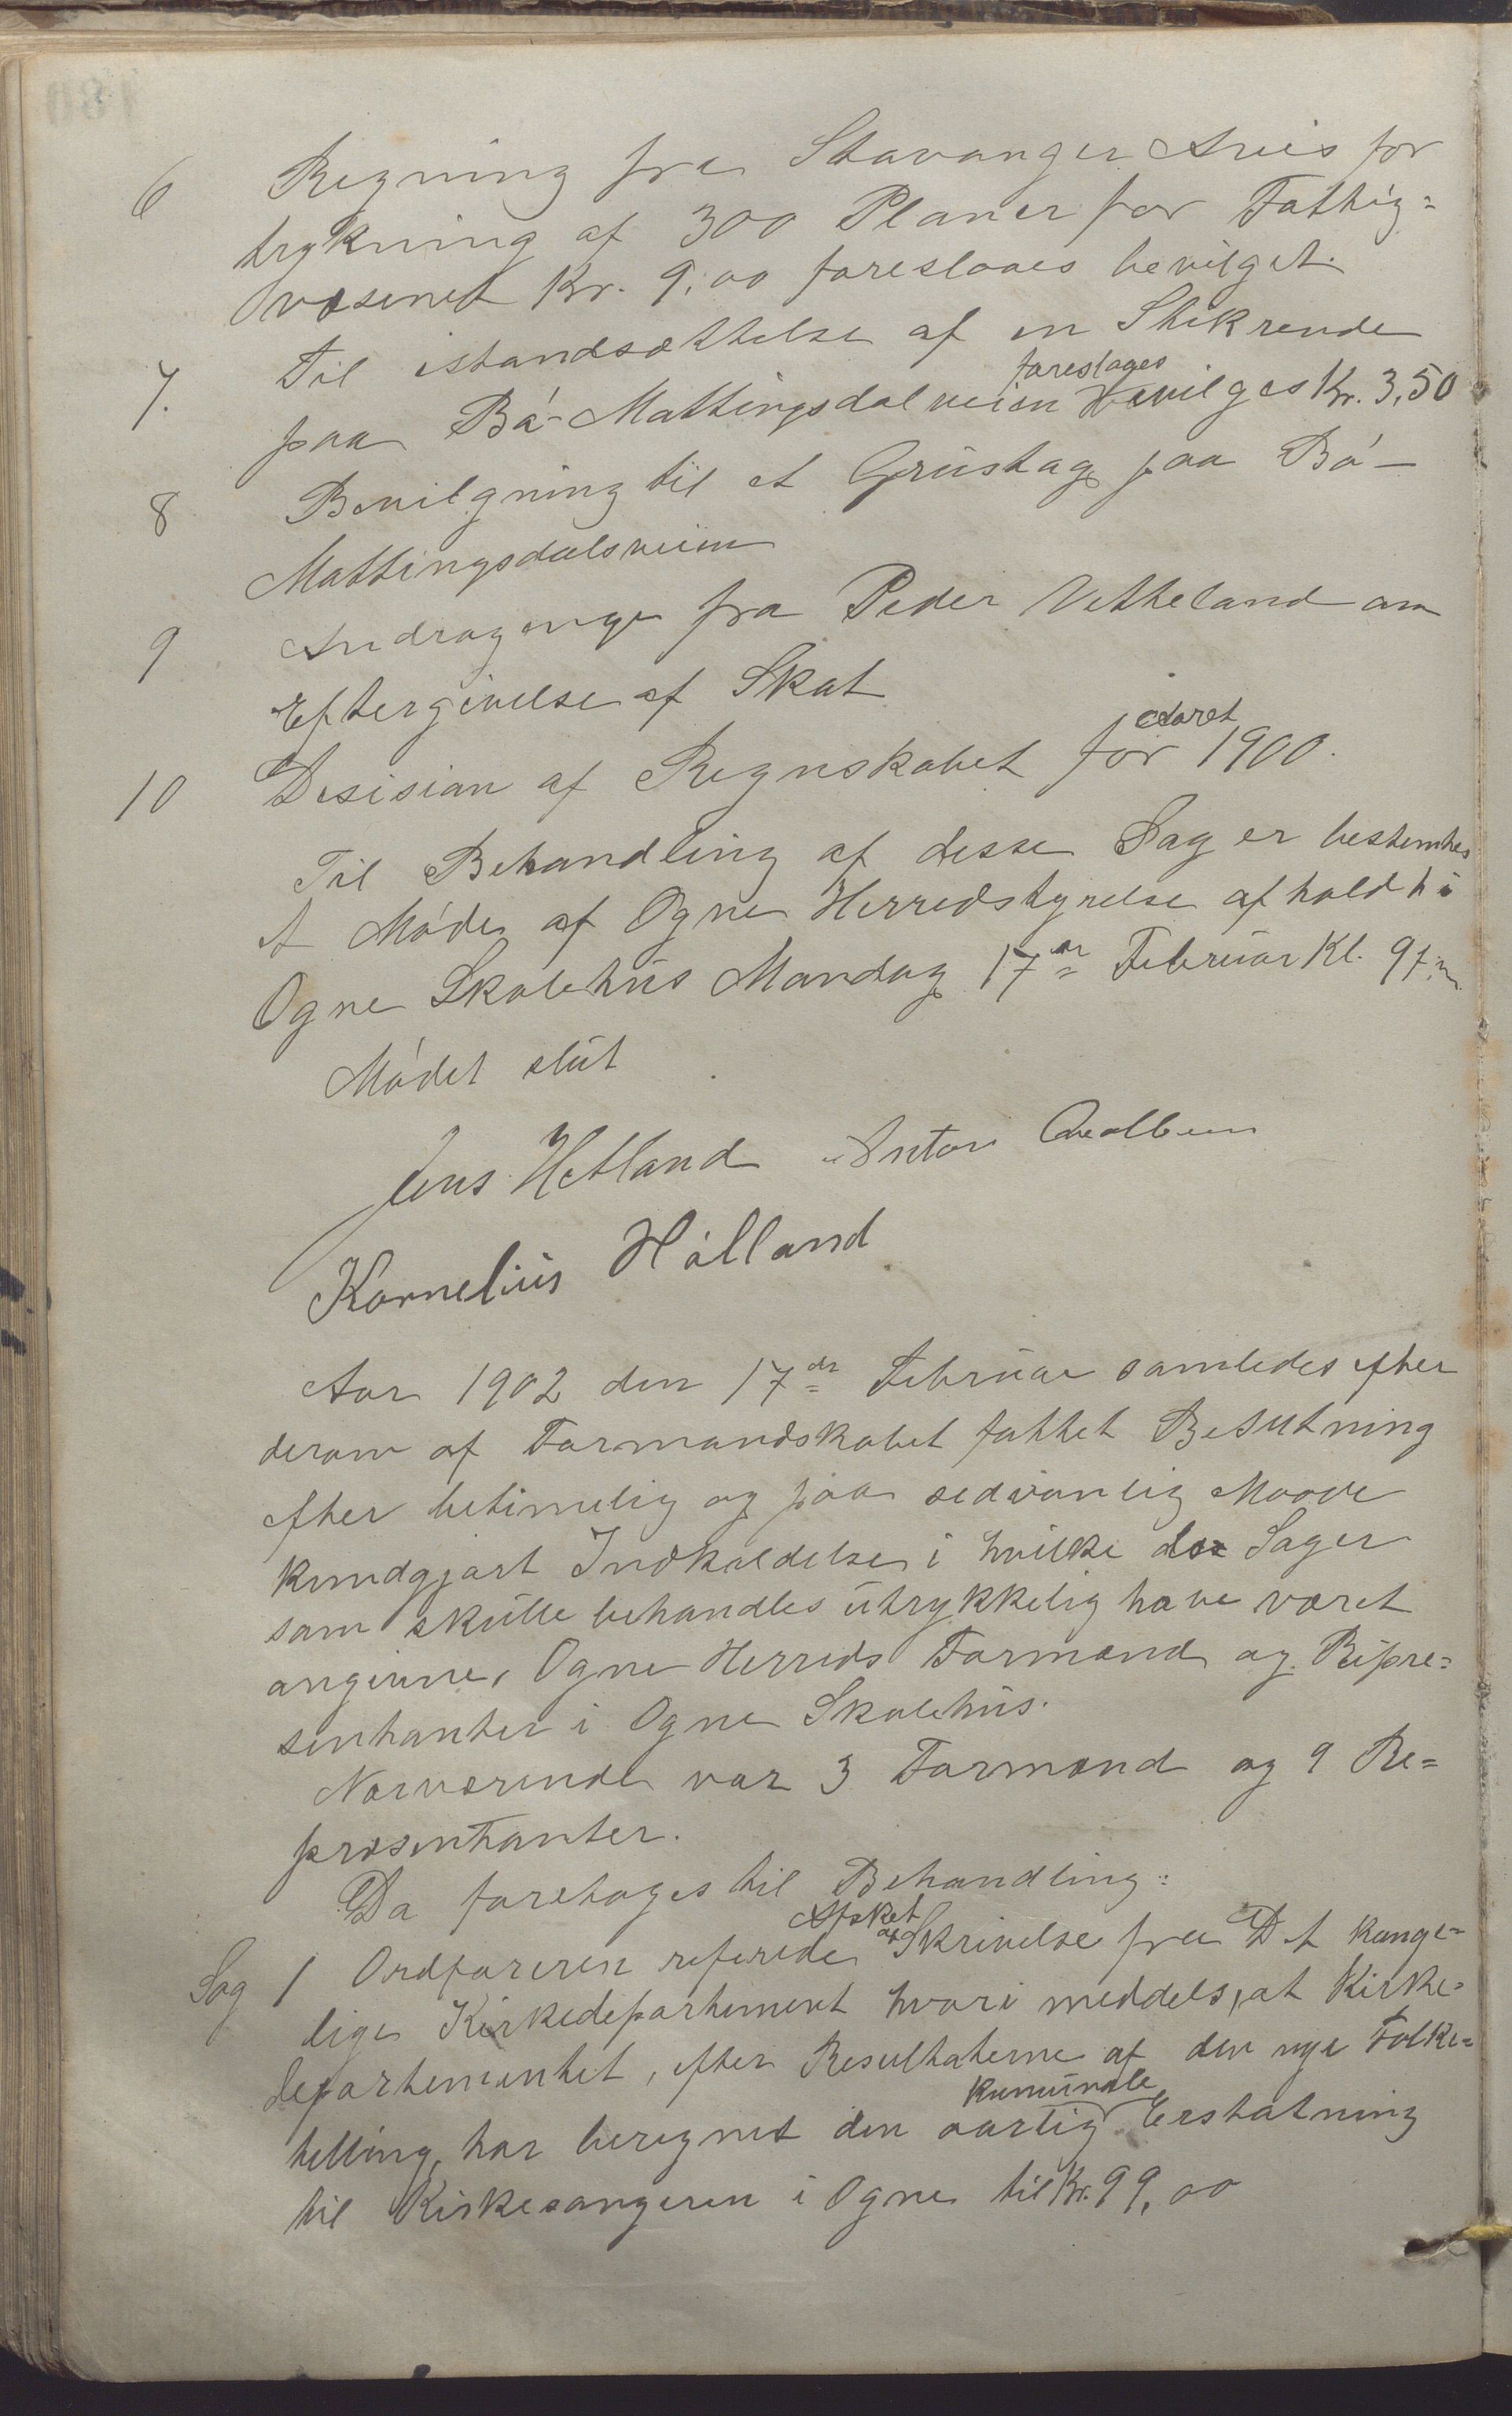 6 Regning fra Stavanger Avis for
trykning af 300 Planer for Fattig=
væsenet Kr. 9,00 foreslaaes bevilget.
7. Til istandsættelse af en Stikrende
foreslages
paa Bø-Mattingsdalveien bevilges Kr. 3,50
8 Bevilgning til et Grustag paa Bø-
Mattingsdalsveien
9 Andragenge fra Peder Vetteland om
Eftergivelse af Skat
Aaret
10 Desision af Regnskabet for 1900.
Til Behandling af desse Sager bestemtes
et Møde af Ogne Herredstyrelse afholdt i
Ogne Skolehus Mandag 17de Februar Kl. 9 f.m.
Mødet slut
Jens Hetland Anton
Kornelius Hølland
Aar 1902 den 17de Februar samledes efter
derom af Formandskabet fattet Beslutning
efter betimelig og paa sedvanlig Maade
kundgjort Indkaldelse i hvilke de Sager
som skulle behandles utrykkelig have været
angivne, Ogne Herreds Formænd og Repre=
sentanter i Ogne Skolehus.
Nærværende var 3 Formænd og 9 Re=
præsentanter.
Da foretoges til Behandling:
Afsket
af
Sag 1 Ordføreren referede Skrivelse fra Det konge=
lige Kirkedepartement hvori meddels, at Kirke=
departementet, efter Resultaterne af den nye Folke=
Kumunale
telling, har beregnet den aarlig Erstatning
til Kirkesangeren i Ogne til Kr. 99,00